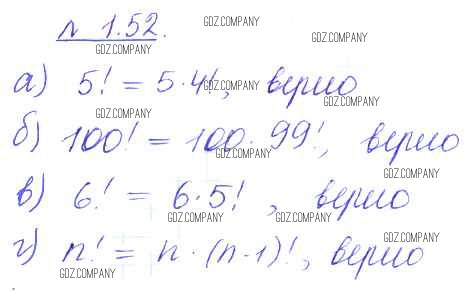 GDZ.COMPANY
№ 1.52.
GDZ.COMPANY
GDZ.COMPANY
а) 5! = 5·4!, верно
GDZ.COMPANY
GDZ.COMPANY
б) 100! = 100·99!, верно
GDZ.COMPANY
GDZ.COMPANY
в) 6! = 6·5!, верно
GDZ.COMPANY
GDZ.COMPANY
GDZ.COMPANY
г) n! = n·(n-1)!, верно
GDZ.COMPANY